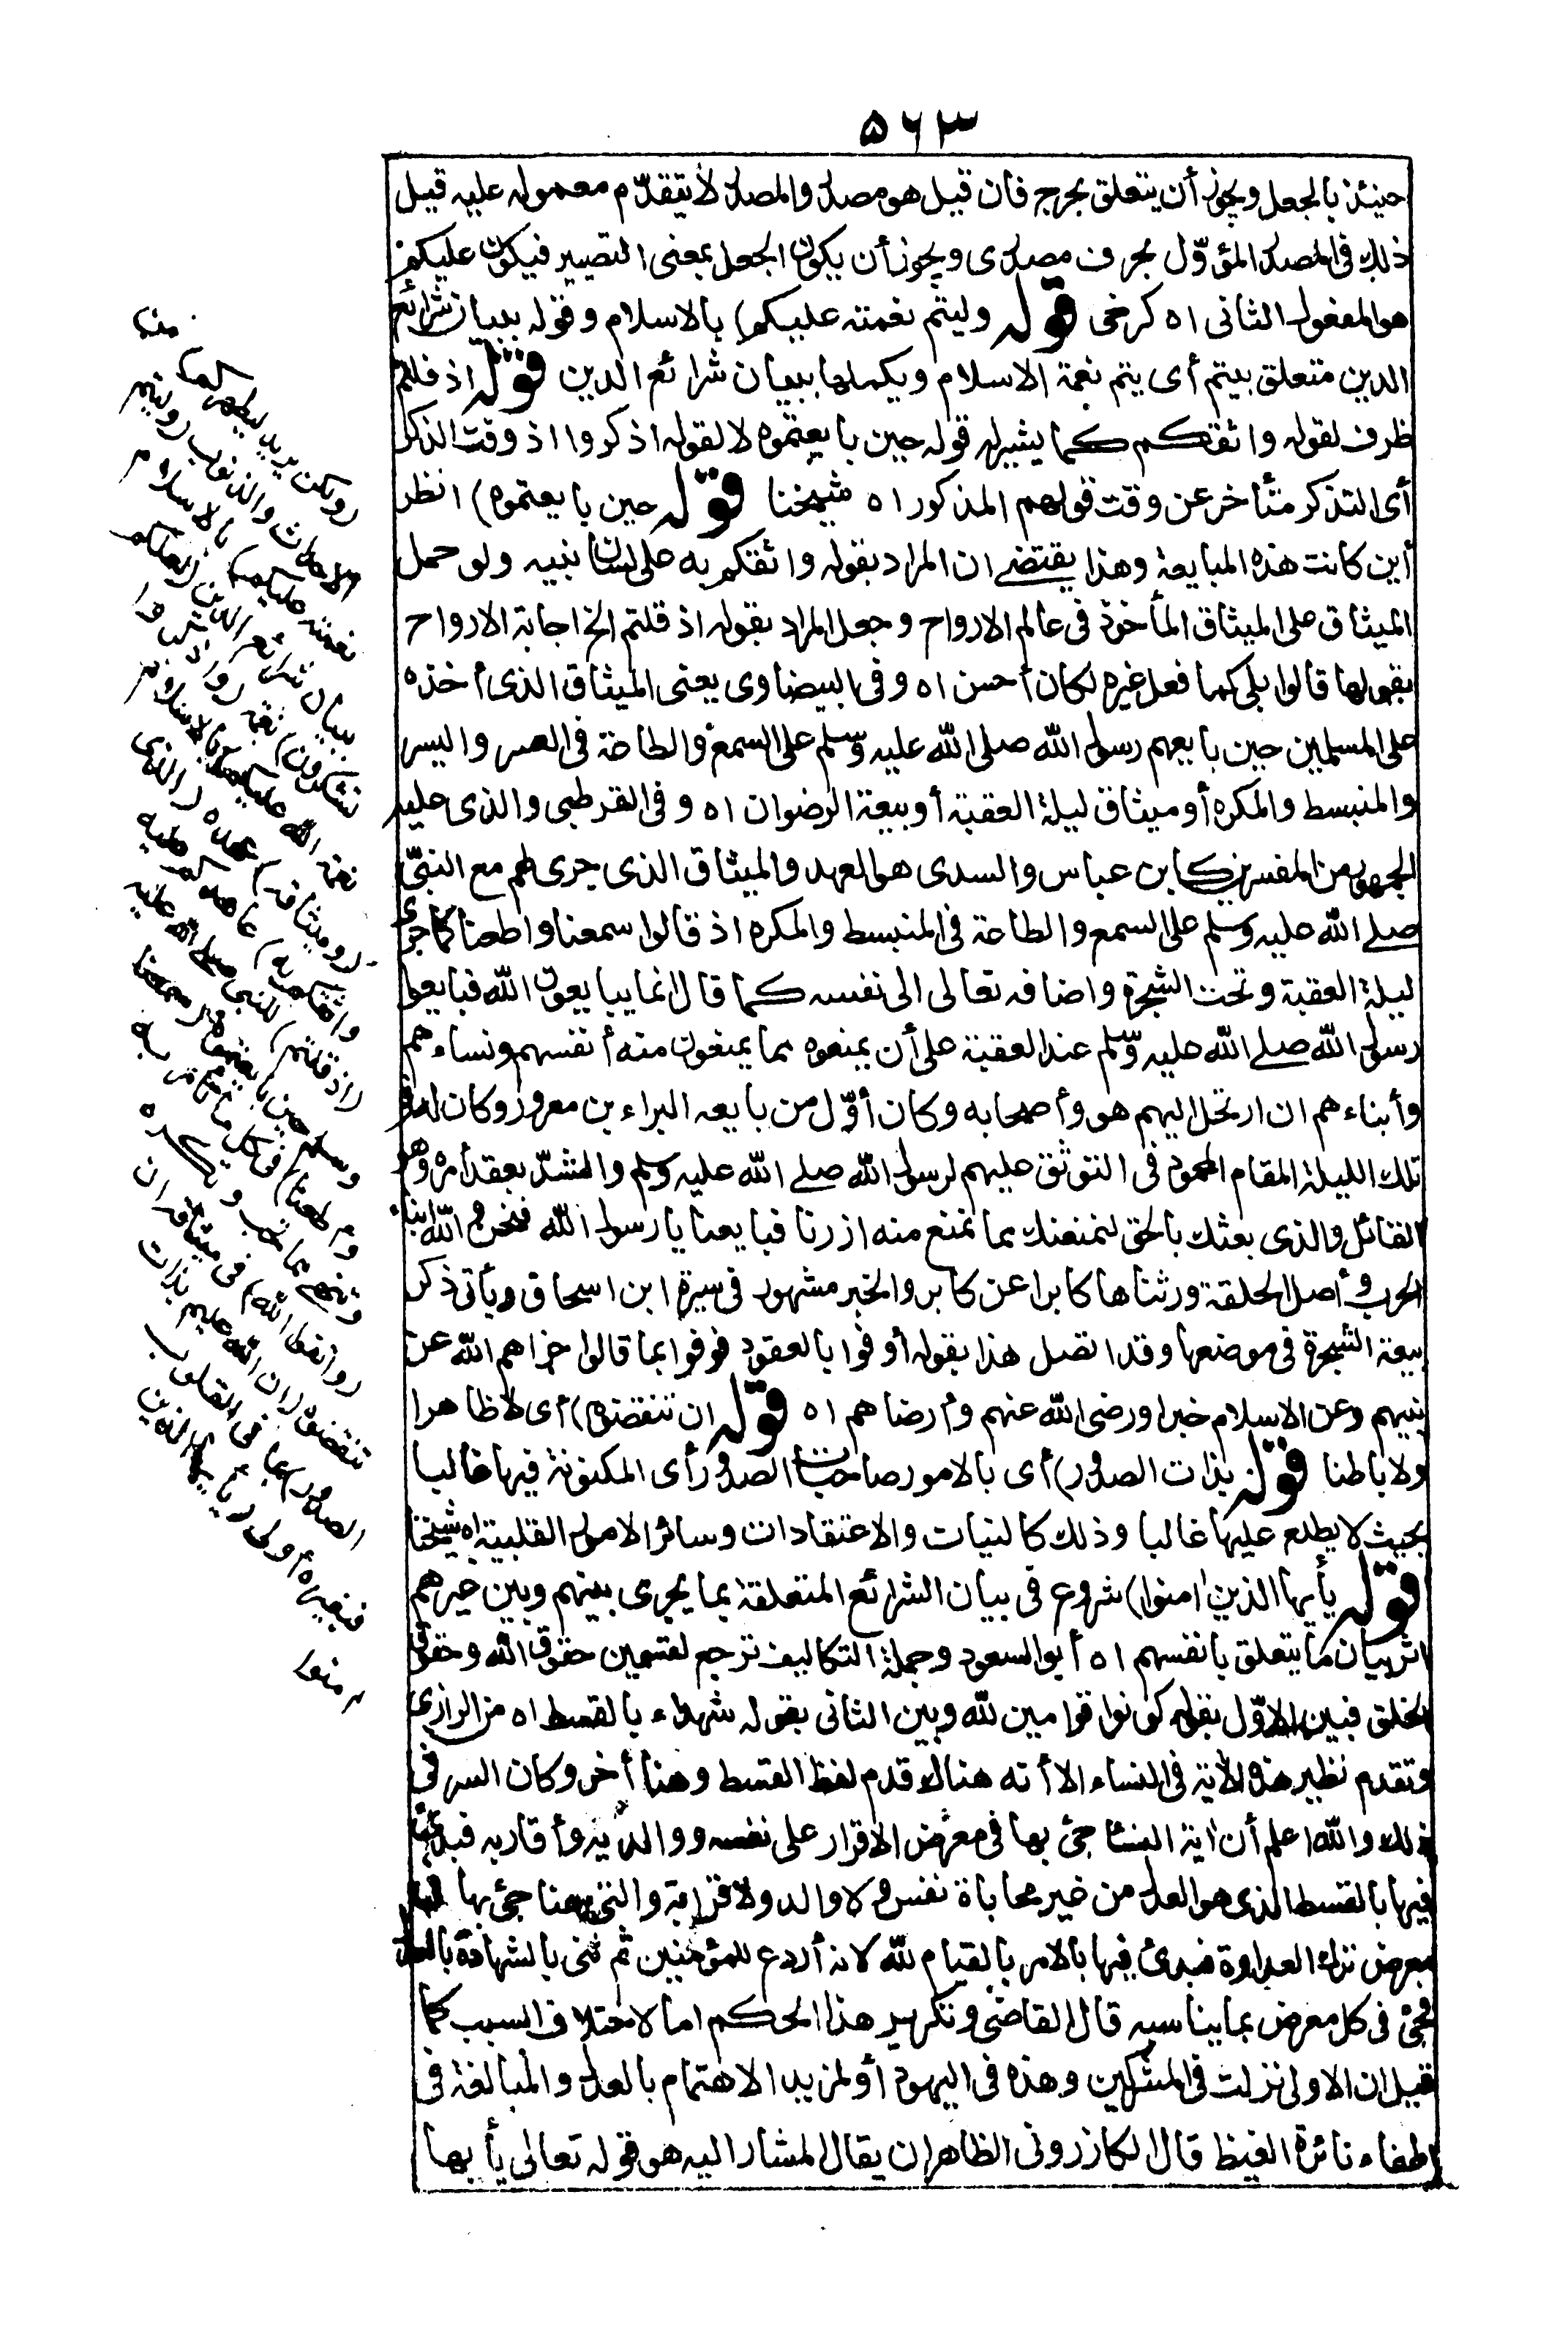 ٥٦٣
حينئذ بالجعل ويجوز أن يتعلق بحرج فان قيل هو مصدر والمصدر لا يتقدّم معموله عليه قيل
ذلك فى المصدر المؤوّل بحرف مصدرى ويجوز أن يكون الجعل بمعنى التصيير فيكون عليكم
هو المفعول الثانى اه كرخى قوله وليتم نعمته عليكم) بالاسلام وقوله ببيان شرائع
الدين متعلق بيتم أى يتم نعمة الاسلام ويكملها ببيان شرائع الدين قوله اذ قلتم
ظرف لقوله واثقكم كما يشير له قوله حين بايعتموه لا لقوله اذكروا اذ وقت الذكر
أى التذكر متأخر عن وقت قولهم المذكور اه شيخنا قوله حين بايعتموه) انظر
أين كانت هذه المبايعة وهذا يقتضى ان المراد بقوله واثقكم به على لسان نبيه ولو حمل
الميثاق على الميثاق المأخوذ فى عالم الارواح وجعل المراد بقوله اذ قلتم الخ اجابة الارواح
بقولها قالوا بلى كما فعل غيره لكان أحسن اه وفى البيضاوى يعنى الميثاق الذى أخذه
على المسلمين حين بايعهم رسول الله صلى الله عليه وسلم على السمع والطاعة فى العسر واليسر
والمنبسط والمكره أو ميثاق ليلة العقبة أو بيعة الرضوان اه وفى القرطبى والذى عليه
الجمهور من المفسرين كابن عباس والسدى هو العهد والميثاق الذى جرى لهم مع النبىّ
صلى الله عليه وسلم على السمع والطاعة فى المنبسط والمكره اذ قالوا سمعنا واطعنا كما جرى
ليلة العقبة وتحت الشجرة واضافه تعالى الى نفسه كما قال انما يبايعون الله فبايعوا
رسول الله صلى الله عليه وسلم عند العقبة على أن يمنعوه مما يمنعون منه أنفسهم ونساءهم
وأبناءهم ان ارتحل اليهم هو وأصحابه وكان أوّل من بايعه البراء بن معرور وكان له فى
تلك الليلة المقام المحمود فى التوثق عليهم لرسول الله صلى الله عليه وسلم والشدّ بعقد أمره وهو
القائل والذى بعثك بالحق لنمنعنك مما نمنع منه ازرنا فبايعنا يا رسول الله فنحن والله ابناء
الحرب وأصل الحلقة ورثناها كابرا عن كابر والخبر مشهور فى سيرة ابن اسحاق ويأتى ذكر
بيعة الشجرة فى موضعها وقد اتصل هذا بقوله أوفوا بالعقود فوفوا بما قالوا جزاهم الله عن
نبيهم وعن الاسلام خيرا ورضى الله عنهم وأرضاهم اه قوله ان تنقضوه) أى لا ظاهرا
ولا باطنا قوله بذات الصدور) أى بالامور صاحبات الصدور أى المكنونة فيها غالبا
بحيث لا يطلع عليها غالبا وذلك كالنيات والاعتقادات وسائر الامور القلبية اه شيخنا
قوله يأيها الذين امنوا) شروع فى بيان الشرائع المتعلقة بما يجرى بينهم وبين غيرهم
اثر بيان ما يتعلق بانفسهم اه أبو السعود وجملة التكاليف ترجع لقسمين حقوق الله وحقوق
الخلق فبين الاوّل بقوله كونوا قوامين لله وبين الثانى بقوله شهداء بالقسط اه من الرازى
وتقدم نظير هذه الأية فى النساء الا أنه هناك قدم لفظ القسط وهنا أخر وكان السر فى
ذلك والله اعلم أن اية النساء جئ بها فى معرض الاقرار على نفسه ووالديه وأقاربه فبدئ
فيها بالقسط الذى هو العدل من غير محاباة نفس ولا والد ولا قرابة والتى هنا جئ بها
بمعرض ترك العداوة فبدئ فيها بالامر بالقيام لله لانه أردع للمؤمنين ثم ثنى بالشهادة بالعدل
فجئ فى كل معرض بما يناسبه قال القاضى وتكرير هذا الحكم اما لاختلاف السبب كما
قيل ان الاولى نزلت فى المشركين وهذه فى اليهود أو لمزيد الاهتمام بالعدل والمبالغة فى
اطفاء نائرة الغيظ قال الكازرونى الظاهر ان يقال المشار اليه هو قوله تعالى يأيها
منها
(ولكن يريد ليطهركم) من
الاحداث والذنوب (وليتم
نعمته عليكم) بالاسلام
ببيان شرائع الدين (لعلكم
تشكرون) نعمه (واذكروا
نعمة الله عليكم) بالاسلام
(وميثاقه) عهده (الذى
واثقكم به) عاهدكم عليه
(اذ قلتم) للنبى صلى الله عليه
وسلم حين بايعتموه (سمعنا
واطعنا) فى كل ما تأمر به
وتنهى مما نحب ونكره
(واتقوا الله) فى ميثاقه ان
تنقضوه (ان الله عليم بذات
الصدور) بما فى القلوب
فبغيره أولى (يأيها الذين
امنوا